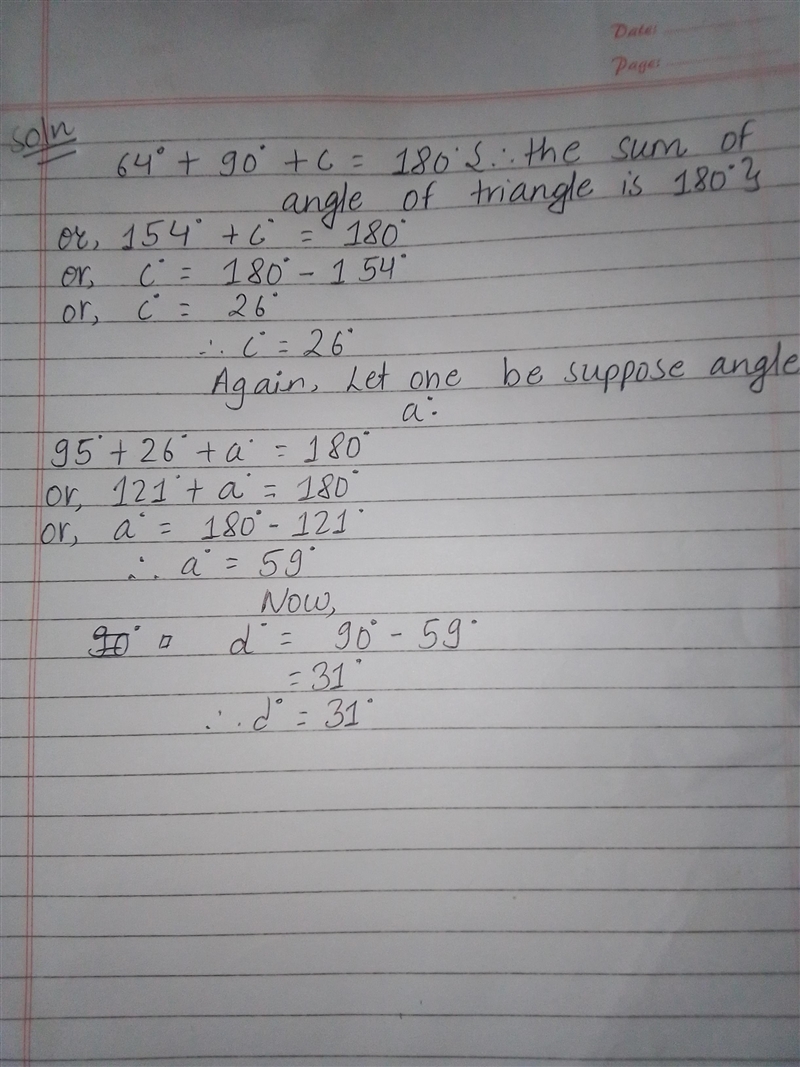 Date:
Page:
Soln
64° + 90° + c = 180° {∴ the sum of
angle of triangle is 180°}
or, 154° + c° = 180°
or, c° = 180° - 154°
or, c° = 26°
∴ c° = 26°
Again, Let one be suppose angle
a°.
95° + 26° + a° = 180°
or, 121° + a° = 180°
or, a° = 180° - 121°
∴ a° = 59°
Now,
d° = 90° - 59°
= 31°
∴ d° = 31°